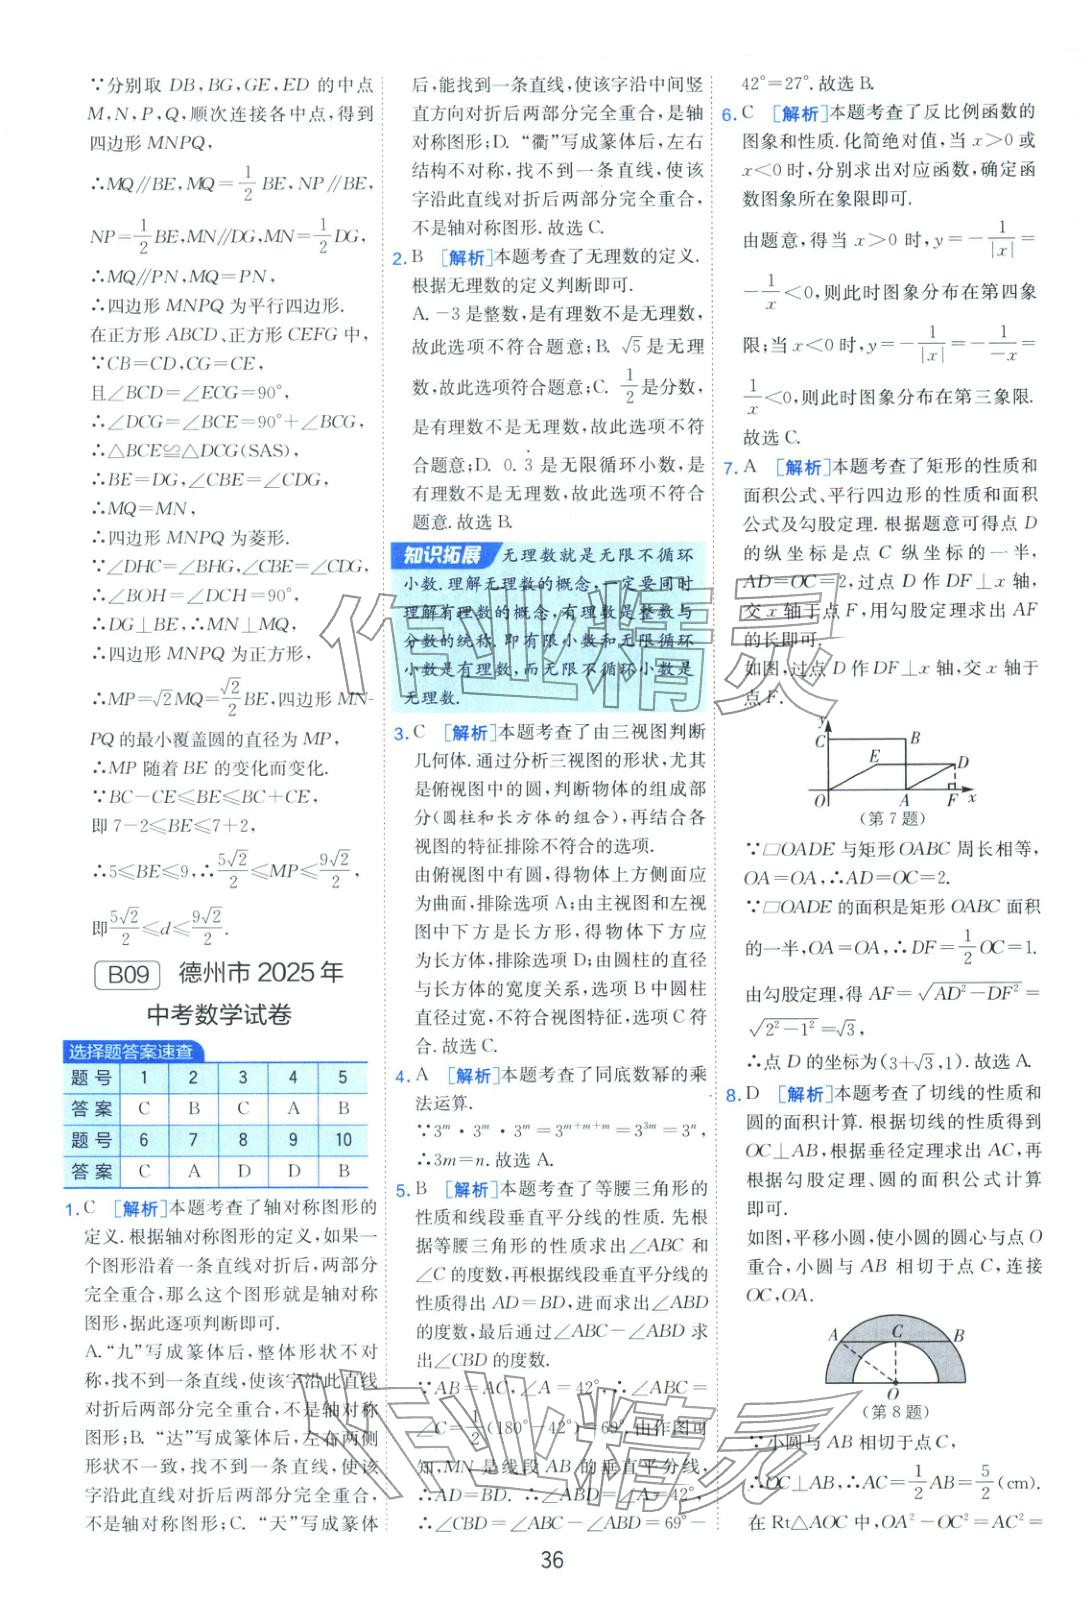 ∵分别取 DB,BG,GE,ED 的中点
M,N,P,Q,顺次连接各中点,得到
四边形 MNPQ,
∴MQ∥BE,MQ=1/2 BE,NP∥BE,
NP=1/2 BE,MN∥DG,MN=1/2 DG,
∴MQ∥PN,MQ=PN,
∴四边形 MNPQ 为平行四边形.
在正方形 ABCD、正方形 CEFG 中,
∵CB=CD,CG=CE,
且∠BCD=∠ECG=90°,
∴∠DCG=∠BCE=90°+∠BCG,
∴△BCE≌△DCG(SAS),
∴BE=DG,∠CBE=∠CDG,
∴MQ=MN,
∴四边形 MNPQ 为菱形.
∵∠DHC=∠BHG,∠CBE=∠CDG,
∴∠BOH=∠DCH=90°,
∴DG⊥BE,∴MN⊥MQ,
∴四边形 MNPQ 为正方形,
∴MP=√2MQ=√2/2 BE,四边形 MN-
PQ 的最小覆盖圆的直径为 MP,
∴MP 随着 BE 的变化而变化.
∵BC−CE≤BE≤BC+CE,
即 7−2≤BE≤7+2,
∴5≤BE≤9,∴5√2/2≤MP≤9√2/2,
即5√2/2≤d≤9√2/2.
B09 德州市 2025 年
中考数学试卷
选择题答案速查
题号 1 2 3 4 5
答案 C B C A B
题号 6 7 8 9 10
答案 C A D D B
1. C [解析]本题考查了轴对称图形的
定义.根据轴对称图形的定义,如果一
个图形沿着一条直线对折后,两部分
完全重合,那么这个图形就是轴对称
图形,据此逐项判断即可.
A.“九”写成篆体后,整体形状不对
称,找不到一条直线,使该字沿此直线
对折后两部分完全重合,不是轴对称
图形;B.“达”写成篆体后,左右两侧
形状不一致,找不到一条直线,使该
字沿此直线对折后两部分完全重合,
不是轴对称图形;C.“天”写成篆体
后,能找到一条直线,使该字沿中间竖
直方向对折后两部分完全重合,是轴
对称图形;D.“衢”写成篆体后,左右
结构不对称,找不到一条直线,使该
字沿此直线对折后两部分完全重合,
不是轴对称图形.故选C.
2. B [解析]本题考查了无理数的定义.
根据无理数的定义判断即可.
A.−3是整数,是有理数不是无理数,
故此选项不符合题意;B.√5是无理
数,故此选项符合题意;C.1/2是分数,
是有理数不是无理数,故此选项不符
合题意;D. 0.3̇是无限循环小数,是
有理数不是无理数,故此选项不符合
题意.故选B.
知识拓展 无理数就是无限不循环
小数.理解无理数的概念,一定要同时
理解有理数的概念,有理数是整数与
分数的统称.即有限小数和无限循环
小数是有理数,而无限不循环小数是
无理数.
3. C [解析]本题考查了由三视图判断
几何体.通过分析三视图的形状,尤其
是俯视图中的圆,判断物体的组成部
分(圆柱和长方体的组合),再结合各
视图的特征排除不符合的选项.
由俯视图中有圆,得物体上方侧面应
为曲面,排除选项A;由主视图和左视
图中下方是长方形,得物体下方应为
长方体,排除选项D;由圆柱的直径
与长方体的宽度关系,选项B中圆柱
直径过宽,不符合视图特征,选项C符
合.故选C.
4. A [解析]本题考查了同底数幂的乘
法运算.
∵3ᵐ·3ᵐ·3ᵐ=3ᵐ⁺ᵐ⁺ᵐ=3³ᵐ=3ⁿ,
∴3m=n.故选A.
5. B [解析]本题考查了等腰三角形的
性质和线段垂直平分线的性质.先根
据等腰三角形的性质求出∠ABC和
∠C的度数,再根据线段垂直平分线的
性质得出AD=BD,进而求出∠ABD
的度数,最后通过∠ABC−∠ABD求
出∠CBD的度数.
∵AB=AC,∠A=42°,∴∠ABC=
∠C=1/2(180°−42°)=69°.由作图可
知,MN是线段AB的垂直平分线,
∴AD=BD.∴∠ABD=∠A=42°,
∴∠CBD=∠ABC−∠ABD=69°−
42°=27°.故选B.
6. C [解析]本题考查了反比例函数的
图象和性质.化简绝对值,当x>0或
x<0时,分别求出对应函数,确定函
数图象所在象限即可.
由题意,得当x>0时,y=−1/|x|=
−1/x<0,则此时图象分布在第四象
限;当x<0时,y=−1/|x|=−1/−x=
1/x<0,则此时图象分布在第三象限.
故选C.
7. A [解析]本题考查了矩形的性质和
面积公式、平行四边形的性质和面积
公式及勾股定理.根据题意可得点D
的纵坐标是点C纵坐标的一半,
AD=OC=2,过点D作DF⊥x轴,
交x轴于点F,用勾股定理求出AF
的长即可.
如图,过点D作DF⊥x轴,交x轴于
点F.
y
C B
E D
O A F x
(第7题)
∵▱OADE与矩形OABC周长相等,
OA=OA,∴AD=OC=2.
∵▱OADE的面积是矩形OABC面积
的一半,OA=OA,∴DF=1/2 OC=1.
由勾股定理,得AF=√(AD²−DF²)=
√(2²−1²)=√3,
∴点D的坐标为(3+√3,1).故选A.
8. D [解析]本题考查了切线的性质和
圆的面积计算.根据切线的性质得到
OC⊥AB,根据垂径定理求出AC,再
根据勾股定理、圆的面积公式计算
即可.
如图,平移小圆,使小圆的圆心与点O
重合,小圆与AB相切于点C,连接
OC,OA.
A C B
O
(第8题)
∵小圆与AB相切于点C,
∴OC⊥AB,∴AC=1/2 AB=5/2(cm).
在Rt△AOC中,OA²−OC²=AC²=
36
作业精灵
作业精灵